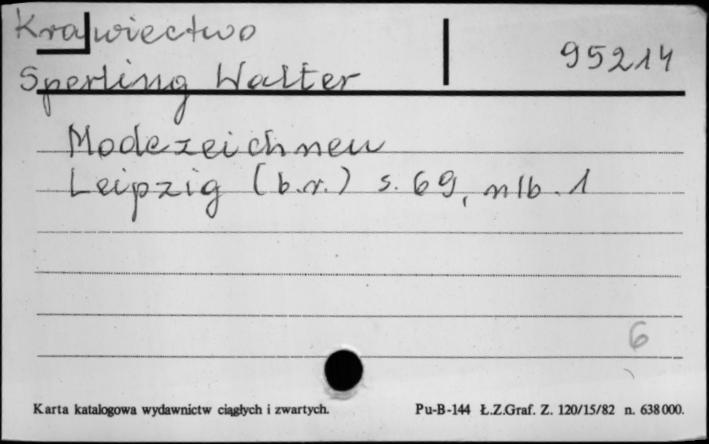 Krawiectwo
95214
Sperling Walter
Modezeichnen
Leipzig (b.r.) s. 69, nlb. 1
6
Karta katalogowa wydawnictw ciągłych i zwartych.
Pu-B-144 Ł.Z.Graf. Z. 120/15/82 n. 638000.